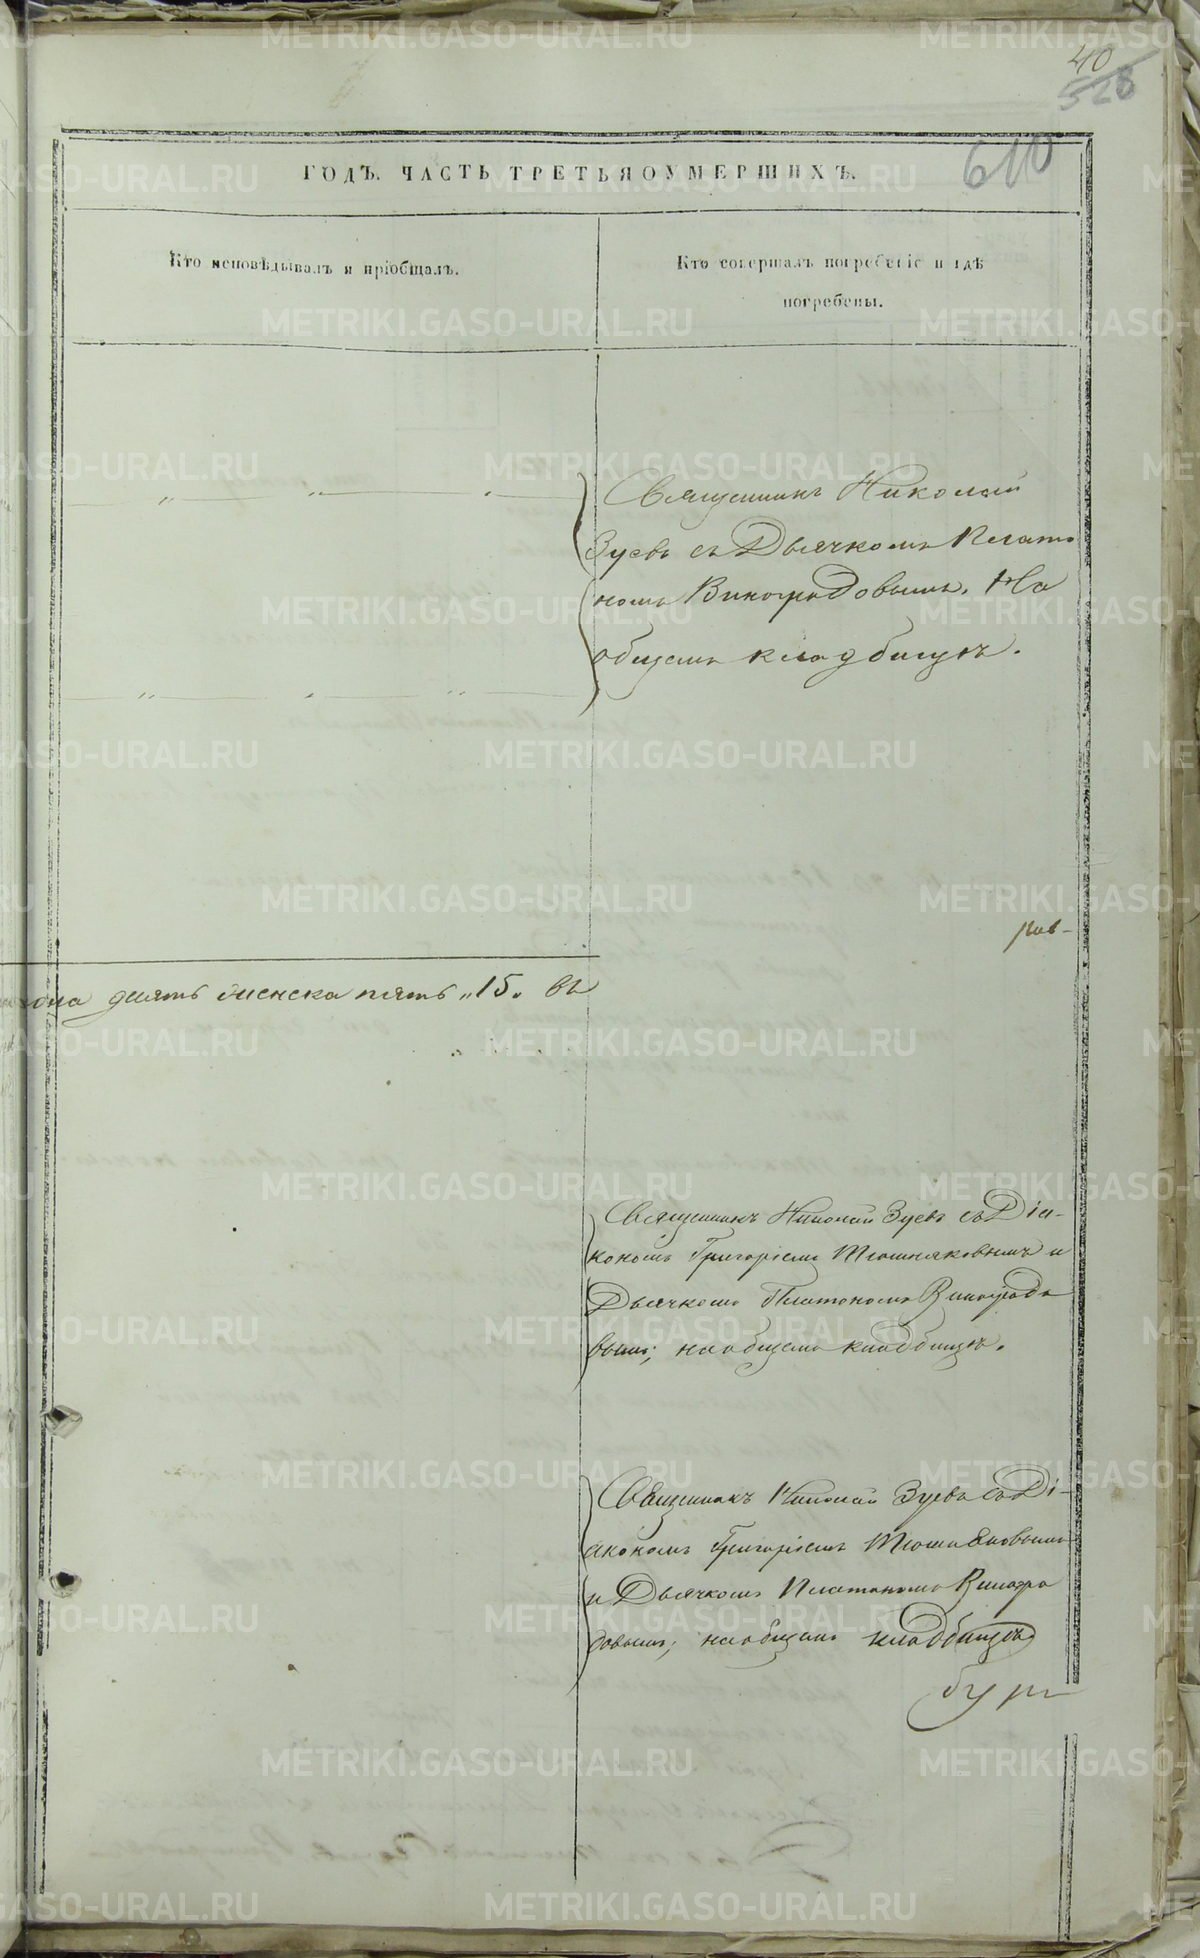 40
528
610
ГОДЪ. ЧАСТЬ ТРЕТЬЯ О УМЕРШИХЪ.
Кто исповѣдывалъ и пріобщалъ.
Кто совершалъ погребеніе и гдѣ
погребены.
Священникъ Николай
Зуевъ съ Дьячкомъ Плато
номъ Виноградовымъ. На
общемъ кладбищѣ.
дѣять женска пять „15„ въ
Священникъ Николай Зуевъ съ Діа-
кономъ Григоріемъ и
Дьячкомъ Платономъ Виноградо
вымъ; на общемъ кладбищѣ.
Священникъ Николай Зуевъ съ Ді-
акономъ Григоріемъ
и Дьячкомъ Платономъ Виногра
довымъ; на общемъ кладбищѣ
METRIKI.GASO-URAL.RU